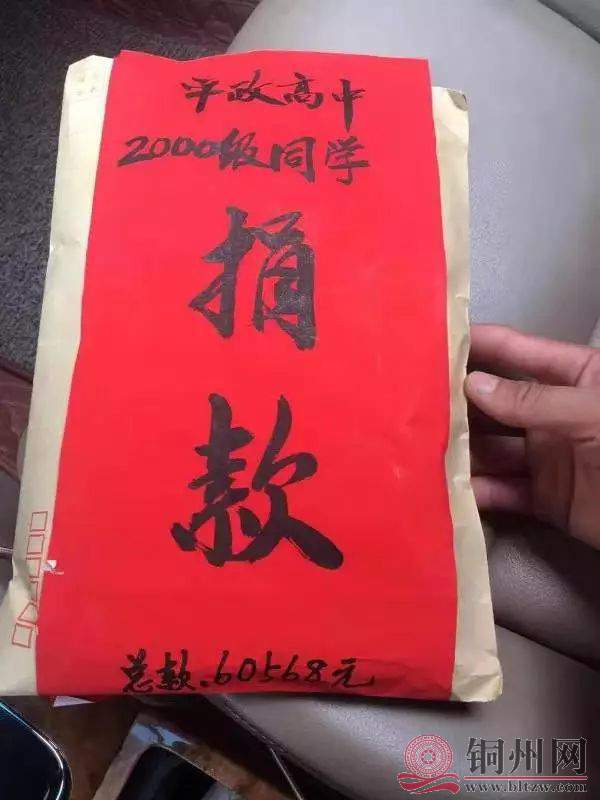 平政高中
2000级同学
捐
款
总款.60568元
铜州网
www.bltzw.com